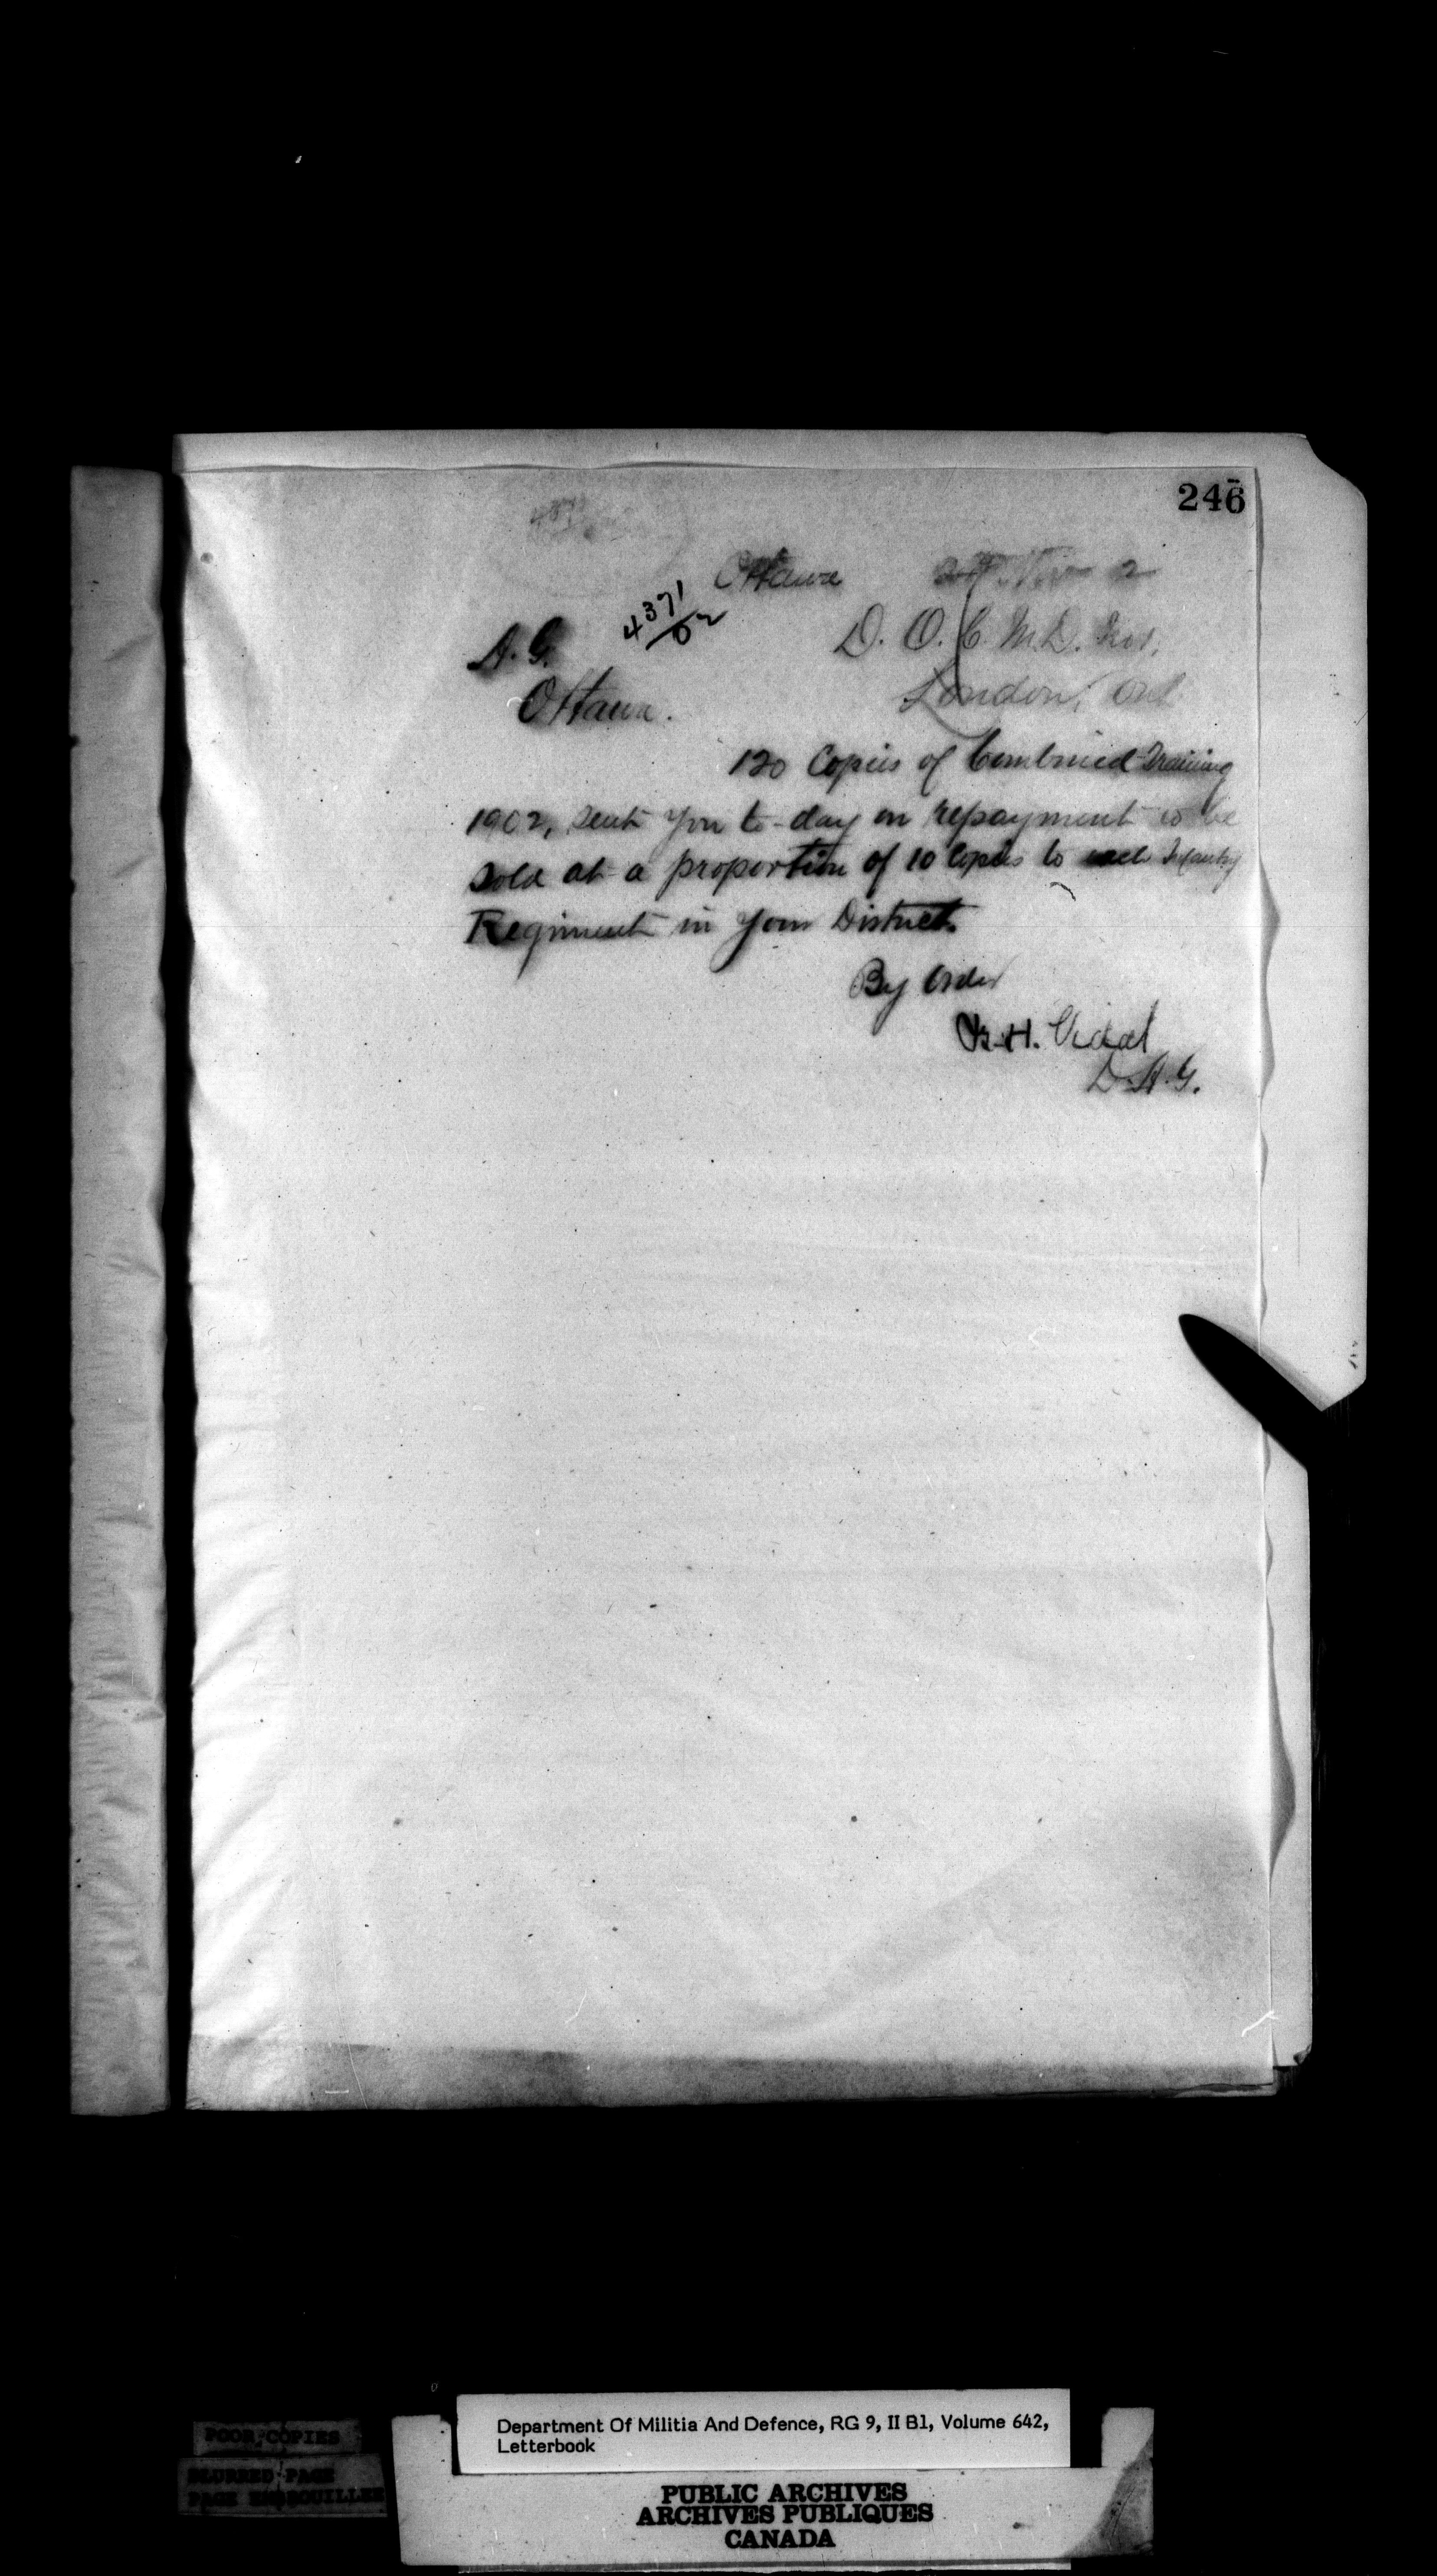 246
Ottawa Nov 2
4371/02
A. G. D. O. C. M. D. No 1.
Ottawa. London, Ont
120 Copies of Combined Training
1902, sent you to-day on repayment to be
sold at a proportion of 10 Copies to each Infantry
Regiment in your District.
By Order
B. H. Vidal
D. A. G.
POOR COPIES
BLURRED PAGE
PAGE EMBROUILLEE
Department Of Militia And Defence, RG 9, II B1, Volume 642,
Letterbook
PUBLIC ARCHIVES
ARCHIVES PUBLIQUES
CANADA